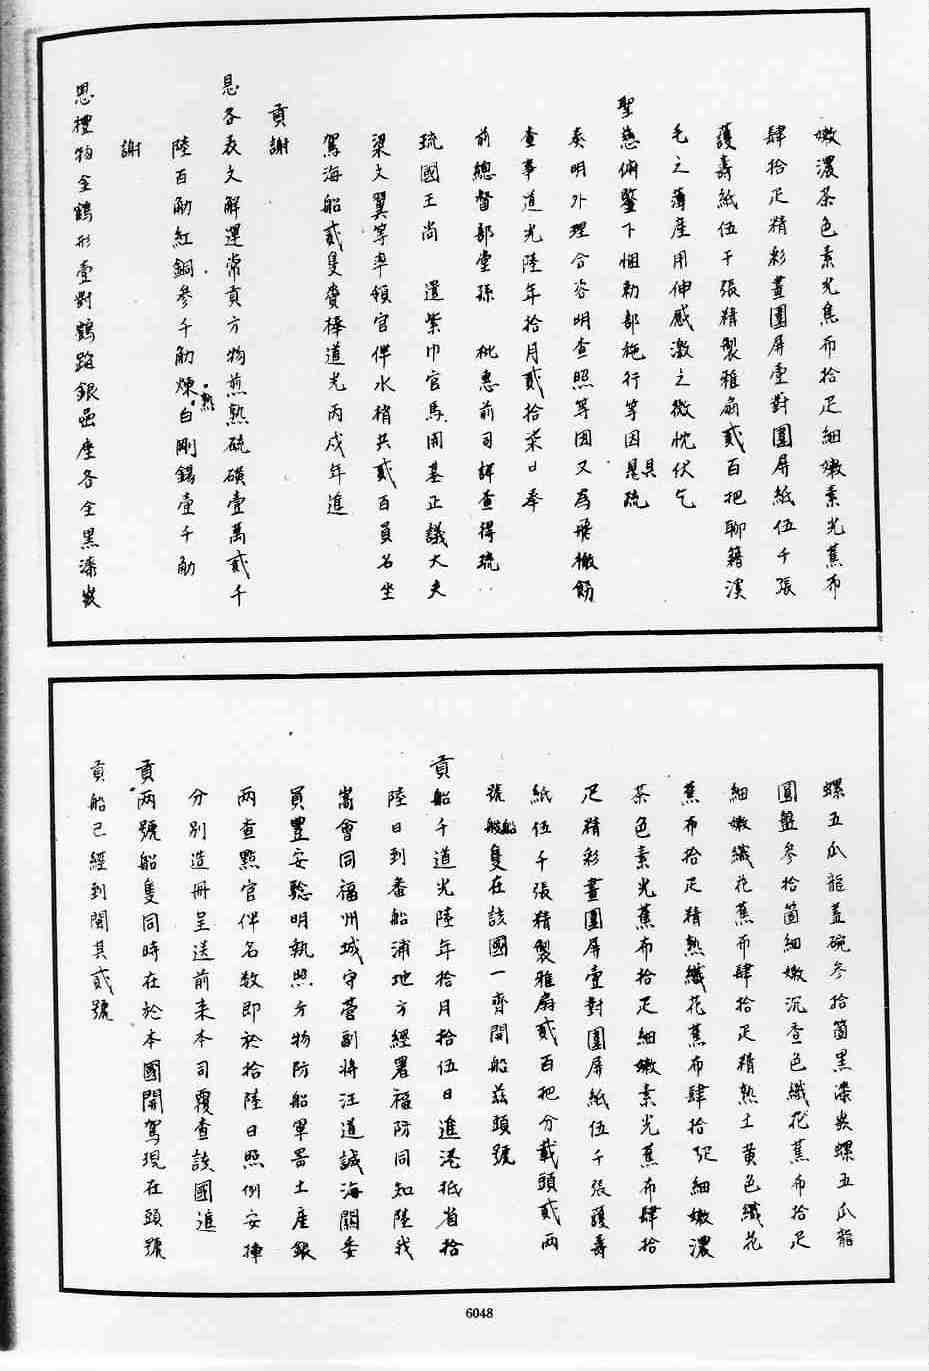 嫩濃茶色素光蕉布拾疋細嫩素光蕉布
肆拾疋精彩畫圍屏壹對圍屏紙伍千張
護壽紙伍千張精製雅扇貳百把聊籍溪
毛之薄產用伸感激之微忱伏乞
聖慈俯鑒下悃勅部施行等因具疏
奏明外理合咨明查照等因又為飛檄飭
查事道光陸年拾月貳拾柒日奉
前總督部堂孫 枇惠前司譯查得琉
琉國王尚 遣紫巾官馬開基正議大夫
梁文翼等率領官伴水梢共貳百員名坐
駕海船貳隻賫捧道光丙戌年進
貢謝
恩各表文解運常貢方物煎熟硫磺壹萬貳千
陸百觔紅銅參千觔煉熟白剛錫壹千觔
謝
恩禮物金鶴形壹對鶴踏銀座各全黑漆嵌
螺五爪龍蓋碗參拾箇黑漆嵌螺五爪龍
圓盤參拾箇細嫩沉香色織花蕉布拾疋
細嫩織花蕉布肆拾疋精熟土黃色織花
蕉布拾疋精熟織花蕉布肆拾疋細嫩濃
茶色素光蕉布拾疋細嫩素光蕉布肆拾
疋精彩畫圍屏壹對圍屏紙伍千張護壽
紙伍千張精製雅扇貳百把分載頭貳兩
號船隻在該國一齊開船茲頭號
貢船于道光陸年拾月拾伍日進港抵省拾
陸日到番船浦地方經署福防同知陸我
嵩會同福州城守營副將汪道誠海關委
員豐安驗明執照方物防船軍器土產銀
兩查點官伴名數即於拾陸日照例安插
分別造冊呈送前來本司覆查該國進
貢兩號船隻同時在於本國開駕現在頭號
貢船已經到閩其貳號
6048